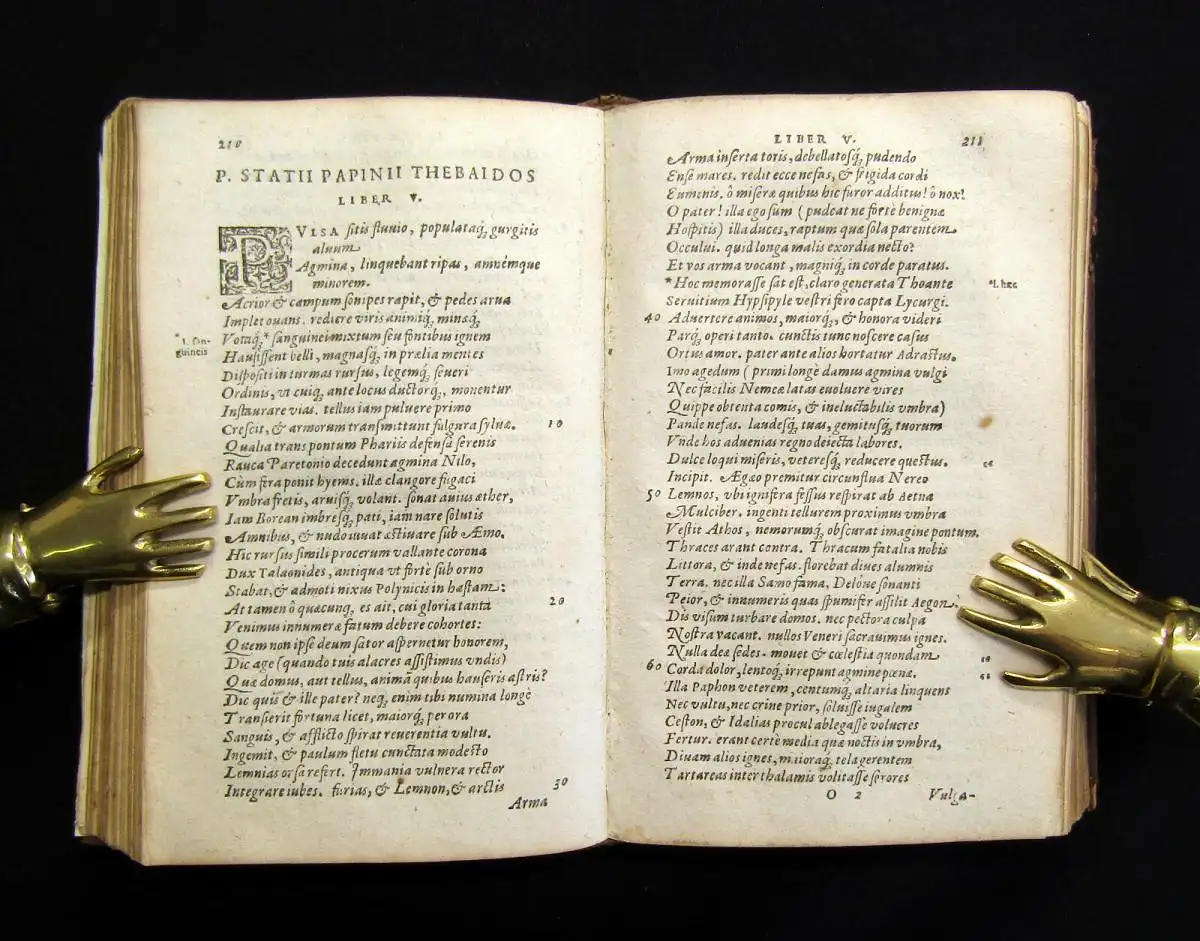 210
P. STATII PAPINII THEBAIDOS
LIBER V.
PVLSA ſitis fluuio, populataq́; gurgitis
aluum
Agmina, linquebant ripas, amnémque
minorem.
Acrior & campum ſonipes rapit, & pedes arua
Implet ouans. rediere viris animiq́; minæq́;
*l. ſan-
guineis
Votaq́;* ſanguinei mixtum ſeu fontibus ignem
Hauſiſſent belli, magnaſq́; in prælia mentes
Diſpoſiti in turmas rurſus, legemq́; ſeueri
Ordinis, vt cuiq; ante locus ductorq́;, monentur
Inſtaurare vias. tellus iam puluere primo
Creſcit, & armorum tranſmittunt fulgura ſyluæ. 10
Qualia trans pontum Phariis defenſa ſerenis
Rauca Parętonio decedunt agmina Nilo,
Cùm fera ponit hyems. illæ clangore fugaci
Vmbra fretis, aruiſq́; volant. ſonat auius æther,
Iam Borean imbreſq́; pati, iam nare ſolutis
Amnibus, & nudo iuuat æſtiuare ſub Æmo.
Hic rurſus ſimili procerum vallante corona
Dux Talaonides, antiqua vt fortè ſub orno
Stabat, & admoti nixus Polynicis in haſtam:
At tamen ô quæcunq; es ait, cui gloria tanta 20
Venimus innumeræ fatum debere cohortes:
Quem non ipſe deum ſator aſpernetur honorem,
Dic age (quando tuis alacres aſſiſtimus vndis)
Quæ domus, aut tellus, animã quibus hauſeris aſtris?
Dic quis & ille pater? neq; enim tibi numina longè
Tranſierit fortuna licet, maiorq́; per ora
Sanguis, & afflicto ſpirat reuerentia vultu.
Ingemit, & paulum fletu cunctata modeſto
Lemnias orſa refert. Immania vulnera rector
Integrare iubes. furias, & Lemnon, & arctis 30
Arma
LIBER V. 211
Arma inſerta toris, debellatoſq́; pudendo
Enſe mares. redit ecce nefas, & frigida cordi
Eumenis. ô miſeræ quibus hic furor additus! ô nox!
O pater! illa ego ſum (pudeat ne fortè benignæ
Hoſpitis) illa duces, raptum quæ ſola parentem
Occului. quid longa malis exordia necto?
Et vos arma vocant, magniq́; in corde paratus.
*Hoc memoraſſe ſat eſt, claro generata Thoante *l. hæc
Seruitium Hypſipyle veſtri fero capta Lycurgi.
40 Aduertere animos, maiorq́;, & honora videri
Parq́; operi tanto. cunctis tunc noſcere caſus
Ortus amor. pater ante alios hortatur Adraſtus.
Imo agedum (primi longè damus agmina vulgi
Nec facilis Nemeæ latas euoluere vires
Quippe obtenta comis, & ineluctabilis vmbra)
Pande nefas. laudeſq́; tuas, gemituſq́; tuorum
Vnde hos aduenias regno deiecta labores.
Dulce loqui miſeris, vetereſq́; reducere queſtus.
Incipit. Ægæo premitur circunflua Nereo
50 Lemnos, vbi ignifera feſſus reſpirat ab Aetna
Mulciber. ingenti tellurem proximus vmbra
Veſtit Athos, nemorumq́; obſcurat imagine pontum.
Thraces arant contra. Thracum fatalia nobis
Littora, & inde nefas. florebat diues alumnis
Terra. nec illa Samo fama, Delóue ſonanti
Peior, & innumeris quas ſpumifer aſſilit Aegon.
Dîs viſum turbare domos. nec pectora culpa
Noſtra vacant. nullos Veneri ſacrauimus ignes.
Nulla deæ ſedes. mouet & cœleſtia quondam
60 Corda dolor, lentoq́; irrepunt agmine pœnæ.
Illa Paphon veterem, centumq́; altaria linquens
Nec vultu, nec crine prior, ſoluiſſe iugalem
Ceſton, & Idalias procul ablegaſſe volucres
Fertur. erant certè media quæ noctis in vmbra,
Diuam alios ignes, maioraq́; tela gerentem
Tartareas inter thalamis volitaſſe ſorores
O 2 Vulga-